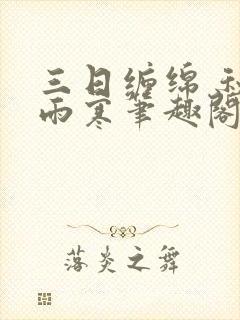 三日缠绵
雨寒笔趣阁
落炎之舞